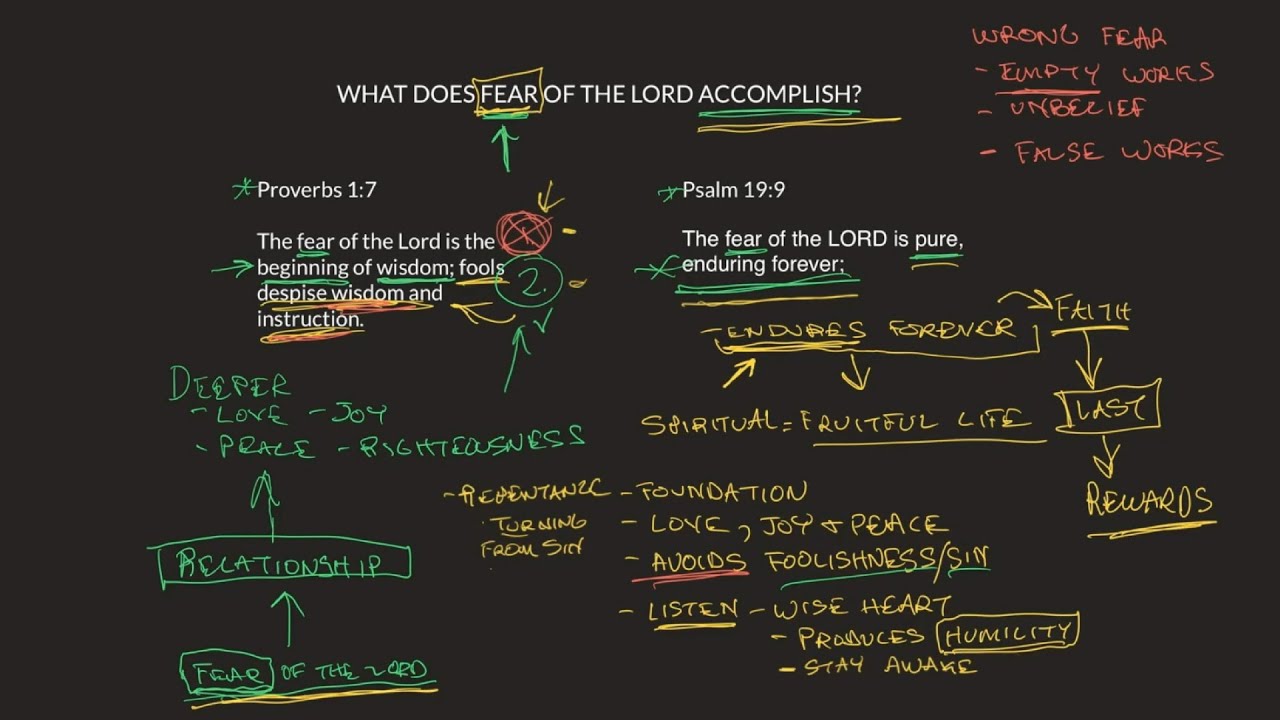 WHAT DOES FEAR OF THE LORD ACCOMPLISH?
WRONG FEAR
- EMPTY WORKS
- UNBELIEF
- FALSE WORKS
Proverbs 1:7
The fear of the Lord is the
beginning of wisdom; fools
despise wisdom and
instruction.
1.
2.
Psalm 19:9
The fear of the LORD is pure,
enduring forever;
- ENDURES FOREVER
FAITH
SPIRITUAL = FRUITFUL LIFE
LAST
REWARDS
DEEPER
- LOVE - JOY
- PEACE - RIGHTEOUSNESS
RELATIONSHIP
FEAR OF THE LORD
- REPENTANCE
TURNING
FROM SIN
- FOUNDATION
- LOVE, JOY + PEACE
- AVOIDS FOOLISHNESS/SIN
- LISTEN - WISE HEART
- PRODUCES HUMILITY
- STAY AWAKE